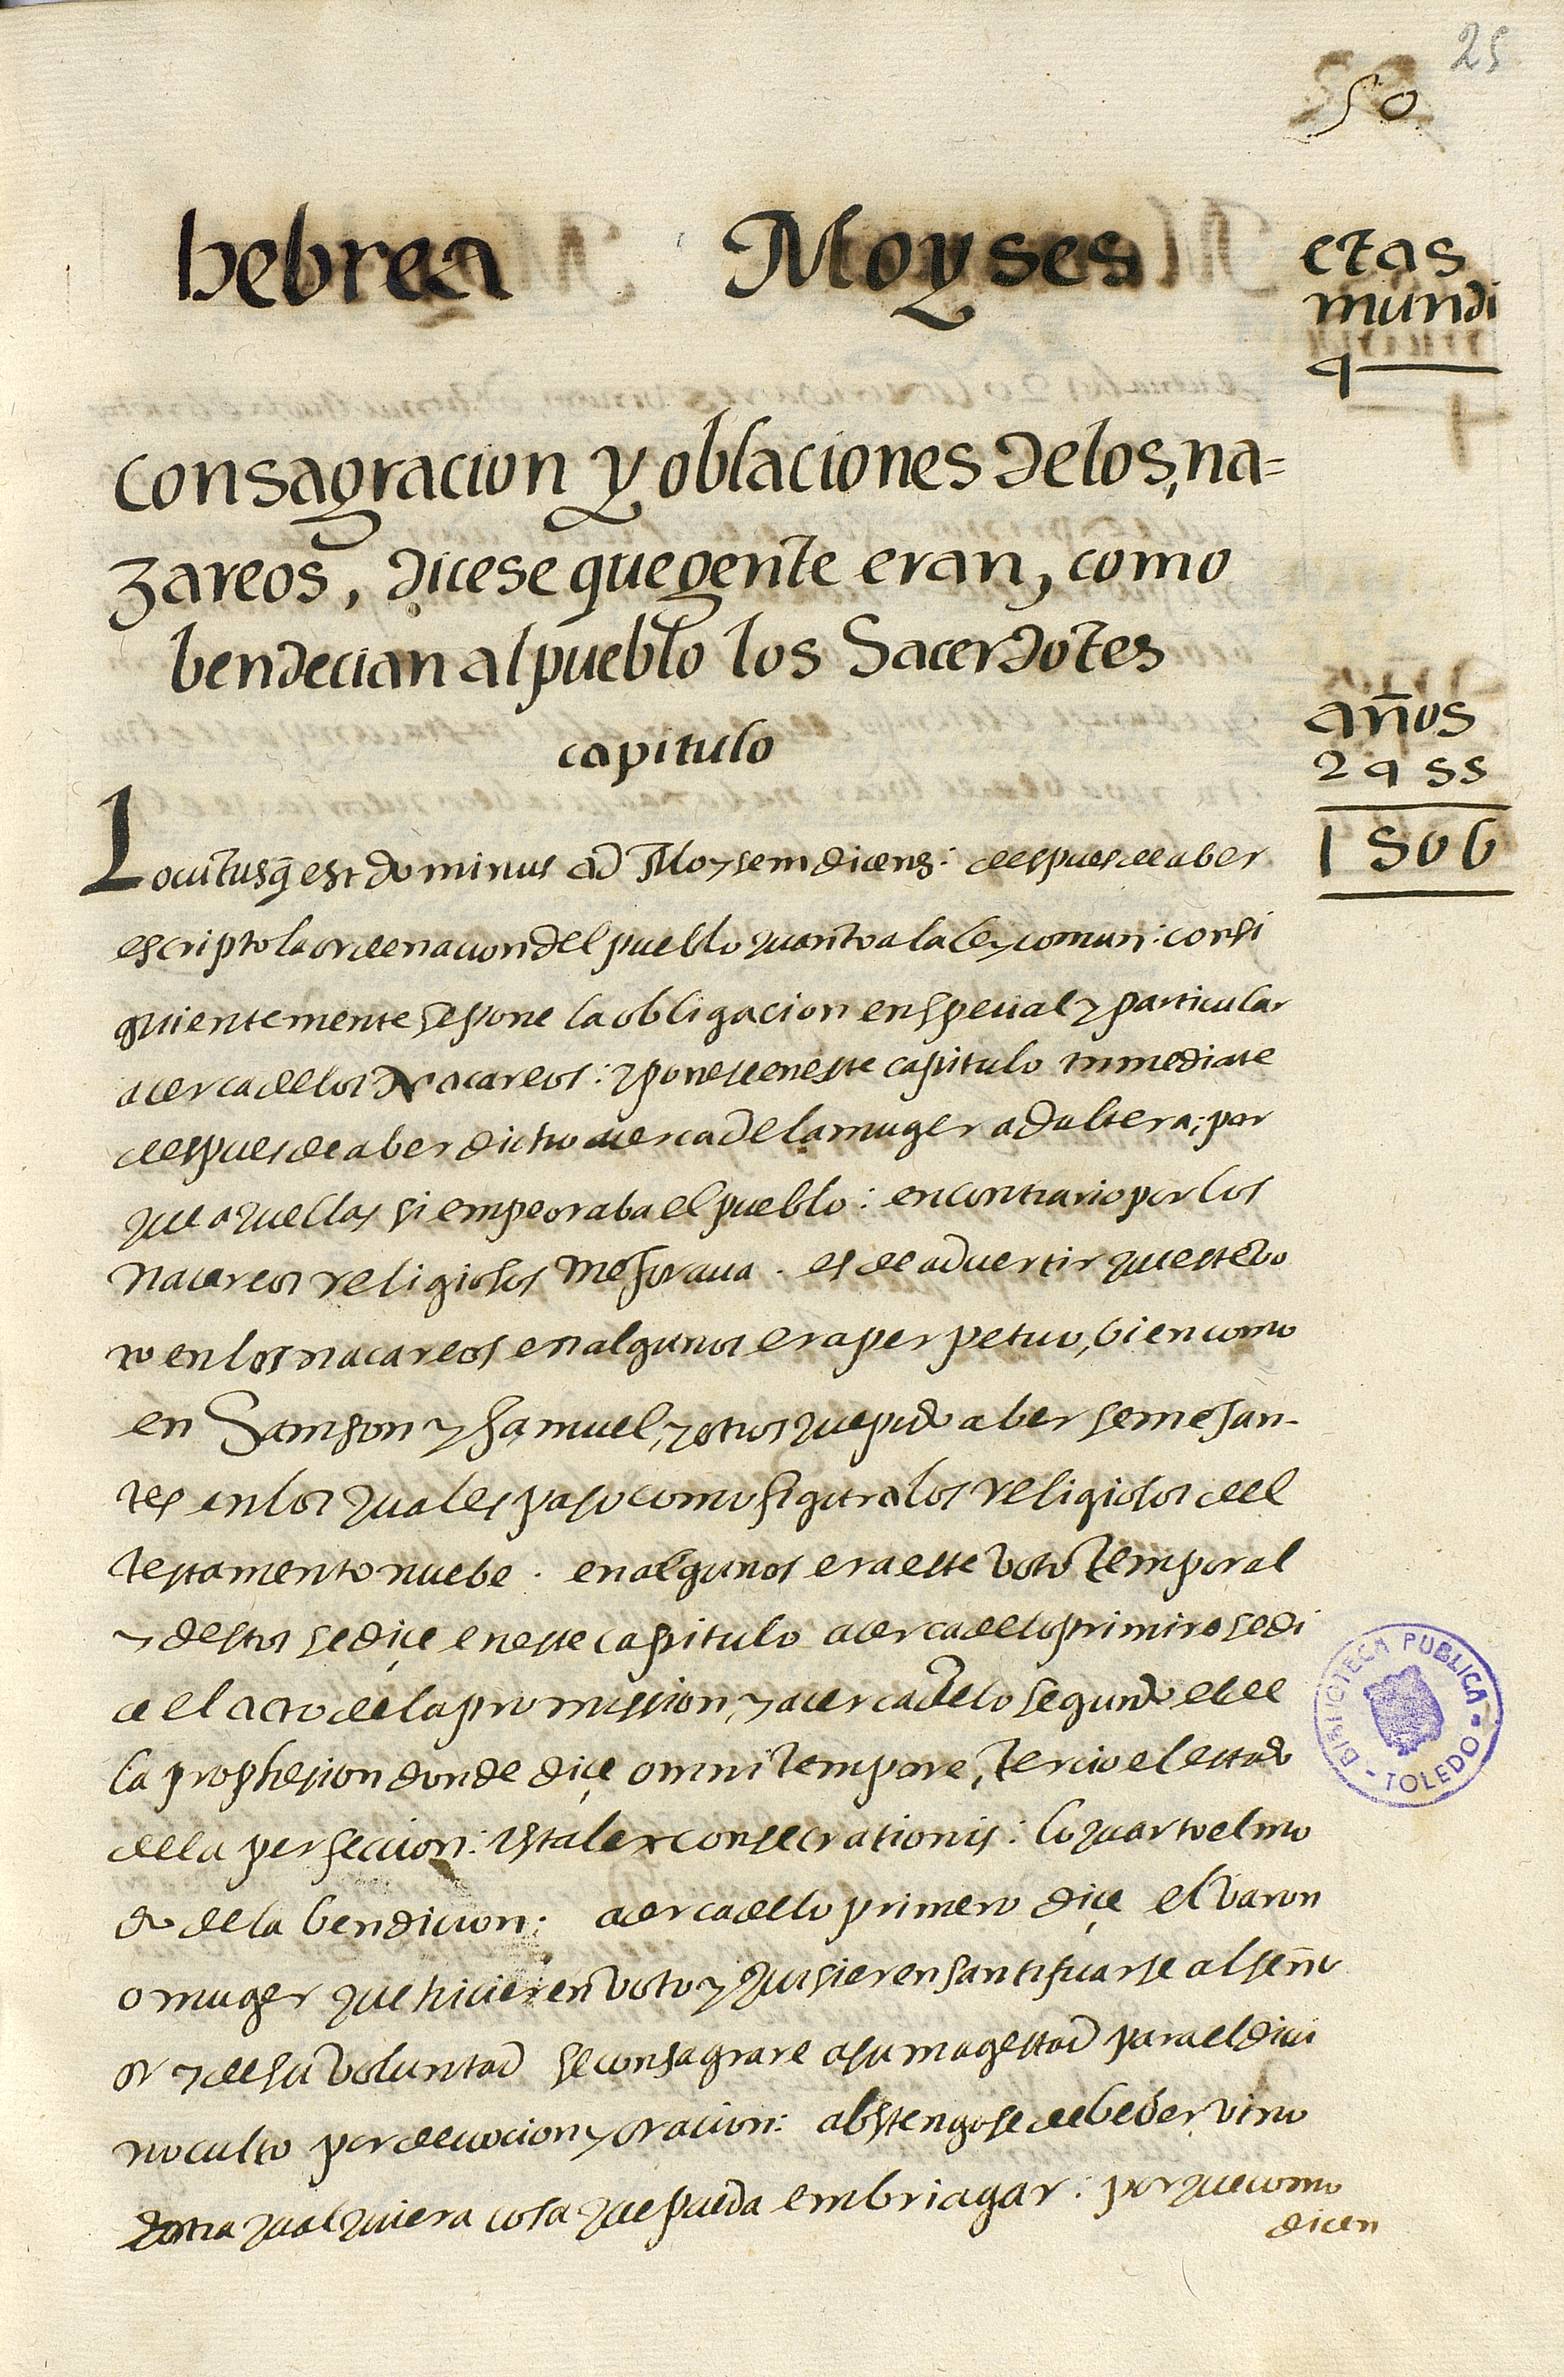 25
50
hebrea Moyses
etas
mundi
4
consagracion y oblaciones delos, na=
zareos, dicese que gente eran, como
bendecian al pueblo los Sacerdotes
capitulo
años
2455
1506
Locutusq̃ est dominus ad Moysem dicens: despues de aber
escripto la ordenacion del pueblo quanto a la ley comun: consi
guientemente se pone la obligacion en special y particular
acerca de los Nacareos: y ponese en este capitulo inmediate
despues de aber dicho acerca de la muger adultera; por
que aquellas si empeoraba el pueblo: en contrario por los
nacareos religiosos mejoraua. es de aduertir que este vo
to en los nacareos en algunos era perpetuo, bien como
en Samson y Samuel, y otros que pudo aber semejan-
tes en los quales paso como figura los religiosos del
testamento nuebe. en algunos era este voto temporal
y destos se diçe en este capitulo acerca de lo primiro se di
ce el acto de la promission, y acerca de lo segundo el de
la prophesion donde diçe omni tempore, tercio el estado
de la perfeccion: ista lex consecrationis: lo quarto el mo
do de la bendicion: acerca de lo primero diçe el varon
o muger que hicieren voto y quisieren santificarse al señ
or y de su voluntad se consagrare a su magestad para el diui
no culto por deuocion y oracion: abstengose de beber vino
y otra qualquiera cosa que pueda embriagar: porque como
dicen
BIBIOTECA PUBLICA - TOLEDO -